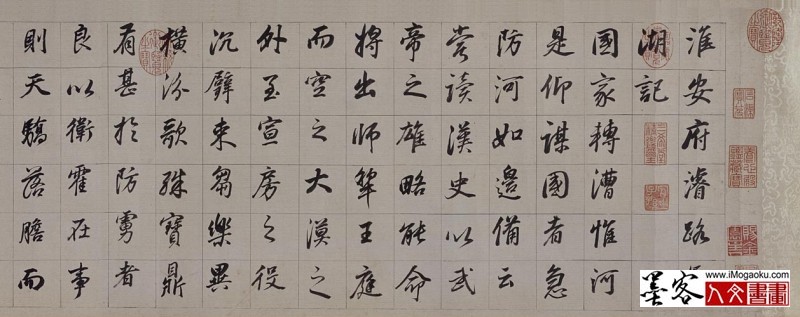 淮安府濬路
湖記
國家轉漕惟河
是仰謀國者急
防河如邊備云
嘗讀漢史以武
帝之雄略能命
將出師犂王庭
而空之大漠之
外至宣房之役
沉璧束芻樂異
橫汾歌殊寶鼎
有甚於防虜者
良以衛霍在事
則天驕落膽而
墨客
www.iMogaoku.com
人文書畫